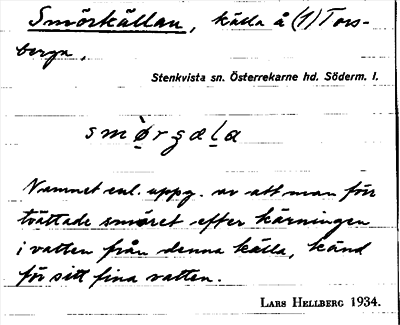 Smörkällan, källa å (1) Tors-
berga.
Stenkvista sn. Österrekarne hd. Söderm. l.
smø̀rʂæḷa
Namnet enl. uppg. av att man förr
tvättade smöret efter kärningen
i vatten från denna källa, känd
för sitt fina vatten.
LARS HELLBERG 1934.